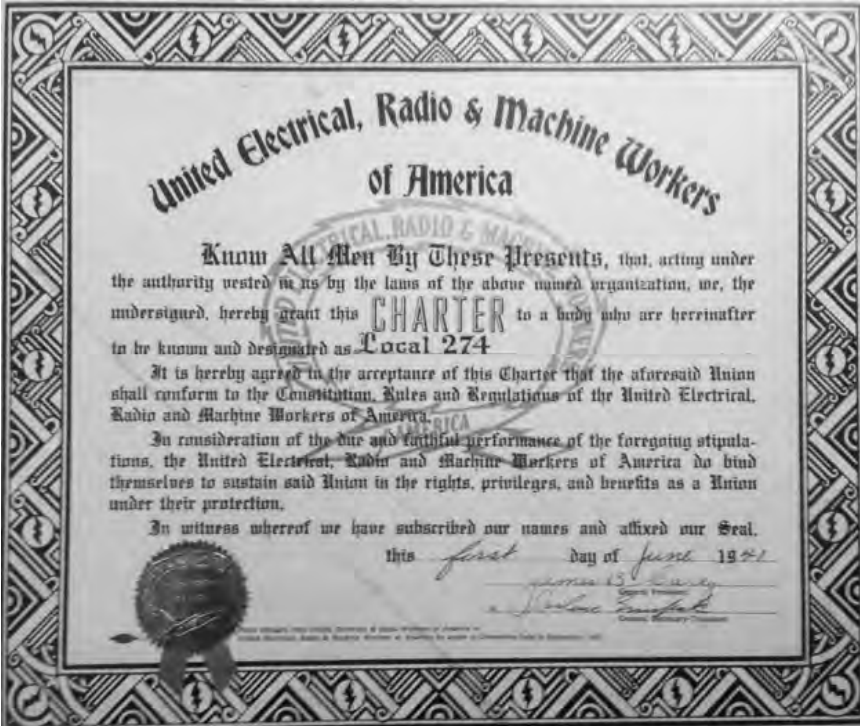 United Electrical, Radio & Machine Workers
of America
UNITED ELECTRICAL, RADIO & MACHINE WORKERS
Know All Men By These Presents, that, acting under
the authority vested in us by the laws of the above named organization, we, the
undersigned, hereby grant this CHARTER to a body who are hereinafter
to be known and designated as Local 274
It is hereby agreed in the acceptance of this Charter that the aforesaid Union
shall conform to the Constitution, Rules and Regulations of the United Electrical,
Radio and Machine Workers of America.
AMERICA
In consideration of the due and faithful performance of the foregoing stipula-
tions, the United Electrical, Radio and Machine Workers of America do bind
themselves to sustain said Union in the rights, privileges, and benefits as a Union
under their protection.
In witness whereof we have subscribed our names and affixed our Seal,
this first day of June 1941
James B. Carey
General President
General Secretary-Treasurer